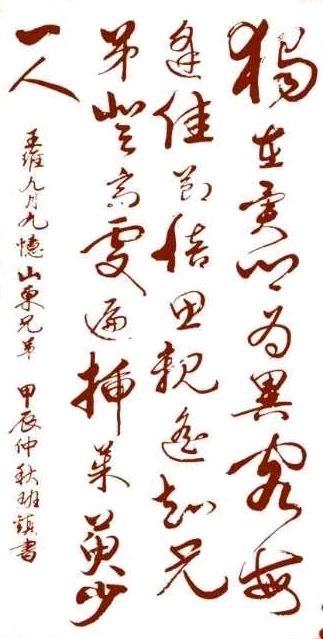 獨在異鄉為異客每
逢佳節倍思親遙知兄
弟登高處遍插茱萸少
一人
王維九月九憶山東兄弟 甲辰仲秋班鎮書